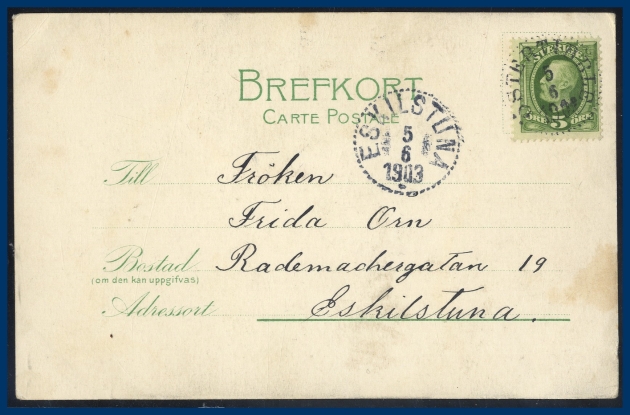 BREFKORT
CARTE POSTALE
SVERIGE
5
ÖRE
5
ÖRE
5
6
ESKILSTUNA
5
6
1903
Till Fröken
Frida Orn
Bostad Rademachergatan 19
(om den kan uppgifvas)
Adressort Eskilstuna.